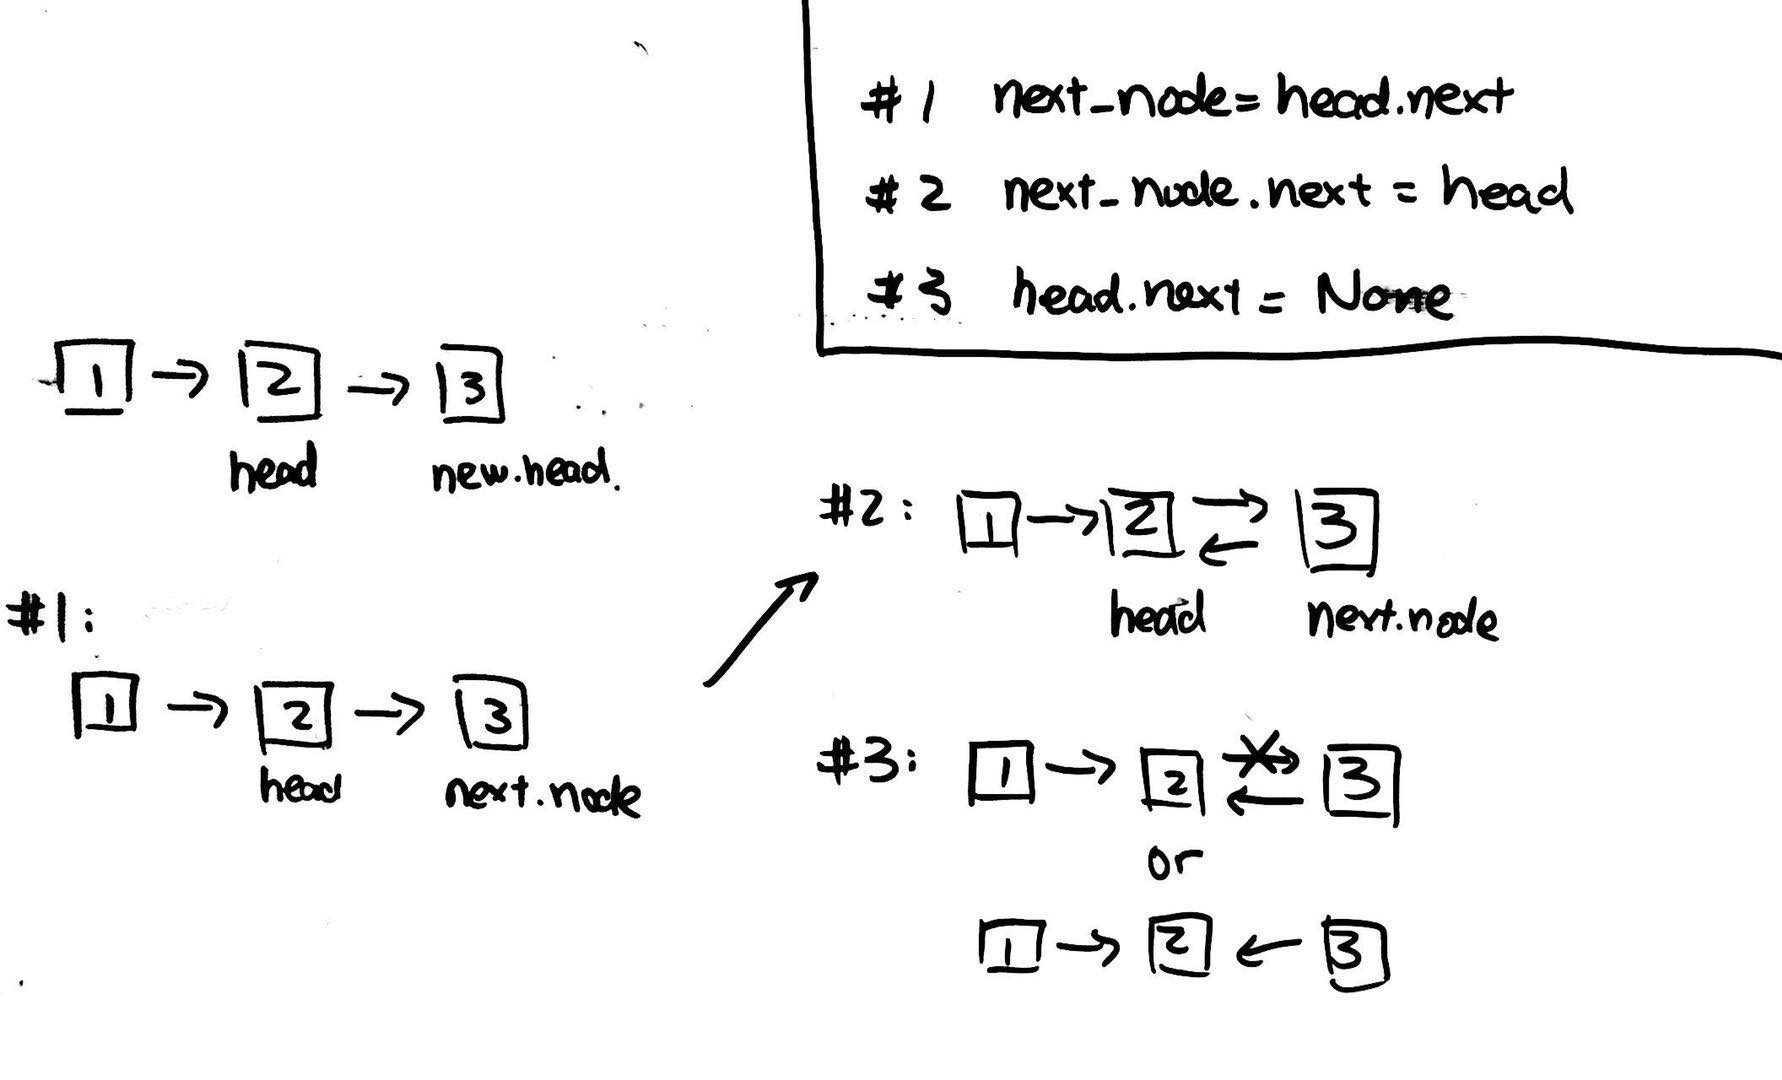 #1 next_node= head.next
#2 next_node.next = head
#3 head.next = None
1 → 2 → 3
head new.head.
#1:
1 → 2 → 3
head next.node
#2: 1 → 2 → ← 3
head next.node
#3: 1 → 2 → ← 3
or
1 → 2 ← 3